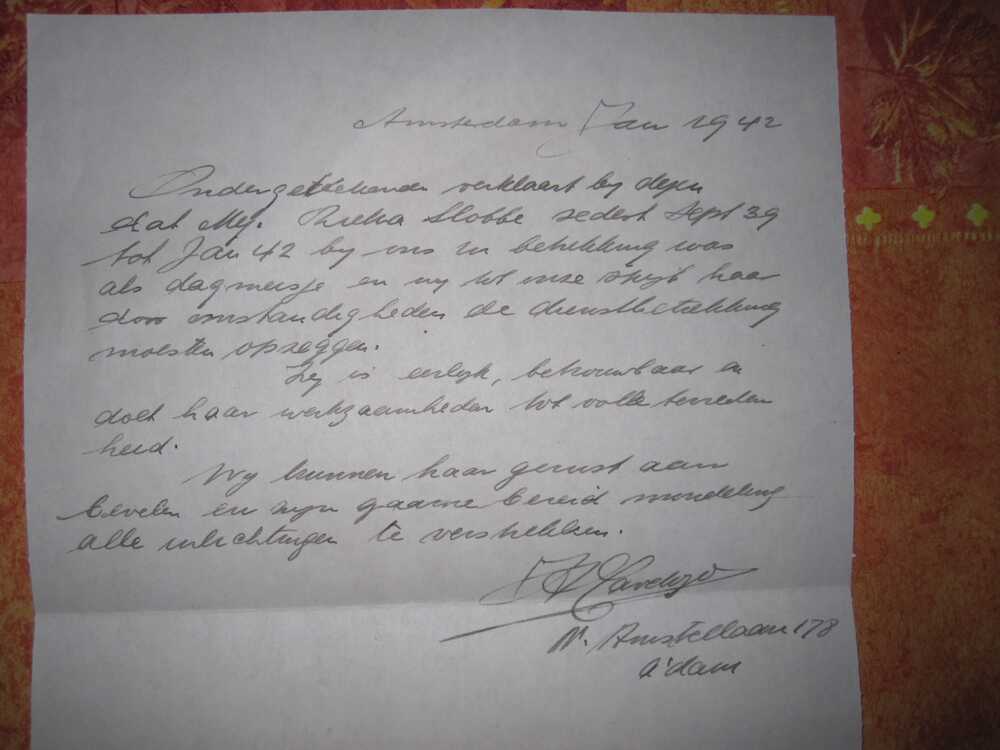 Amsterdam Jan 1942
Ondergetekende verklaart by dezen
dat Mej. Slobbe sedert Sept 39
tot Jan 42 by ons in betrekking was
als dagmeisje en wy tot onze spyt haar
door omstandigheden de dienstbetrekking
moesten opzeggen.
Zy is eerlyk, betrouwbaar en
doet haar werkzaamheden tot volle tevreden
heid.
Wy kunnen haar gerust aan
bevelen en zyn gaarne bereid mondeling
alle inlichtingen te verstrekken.
N. Amstellaan 178
A'dam